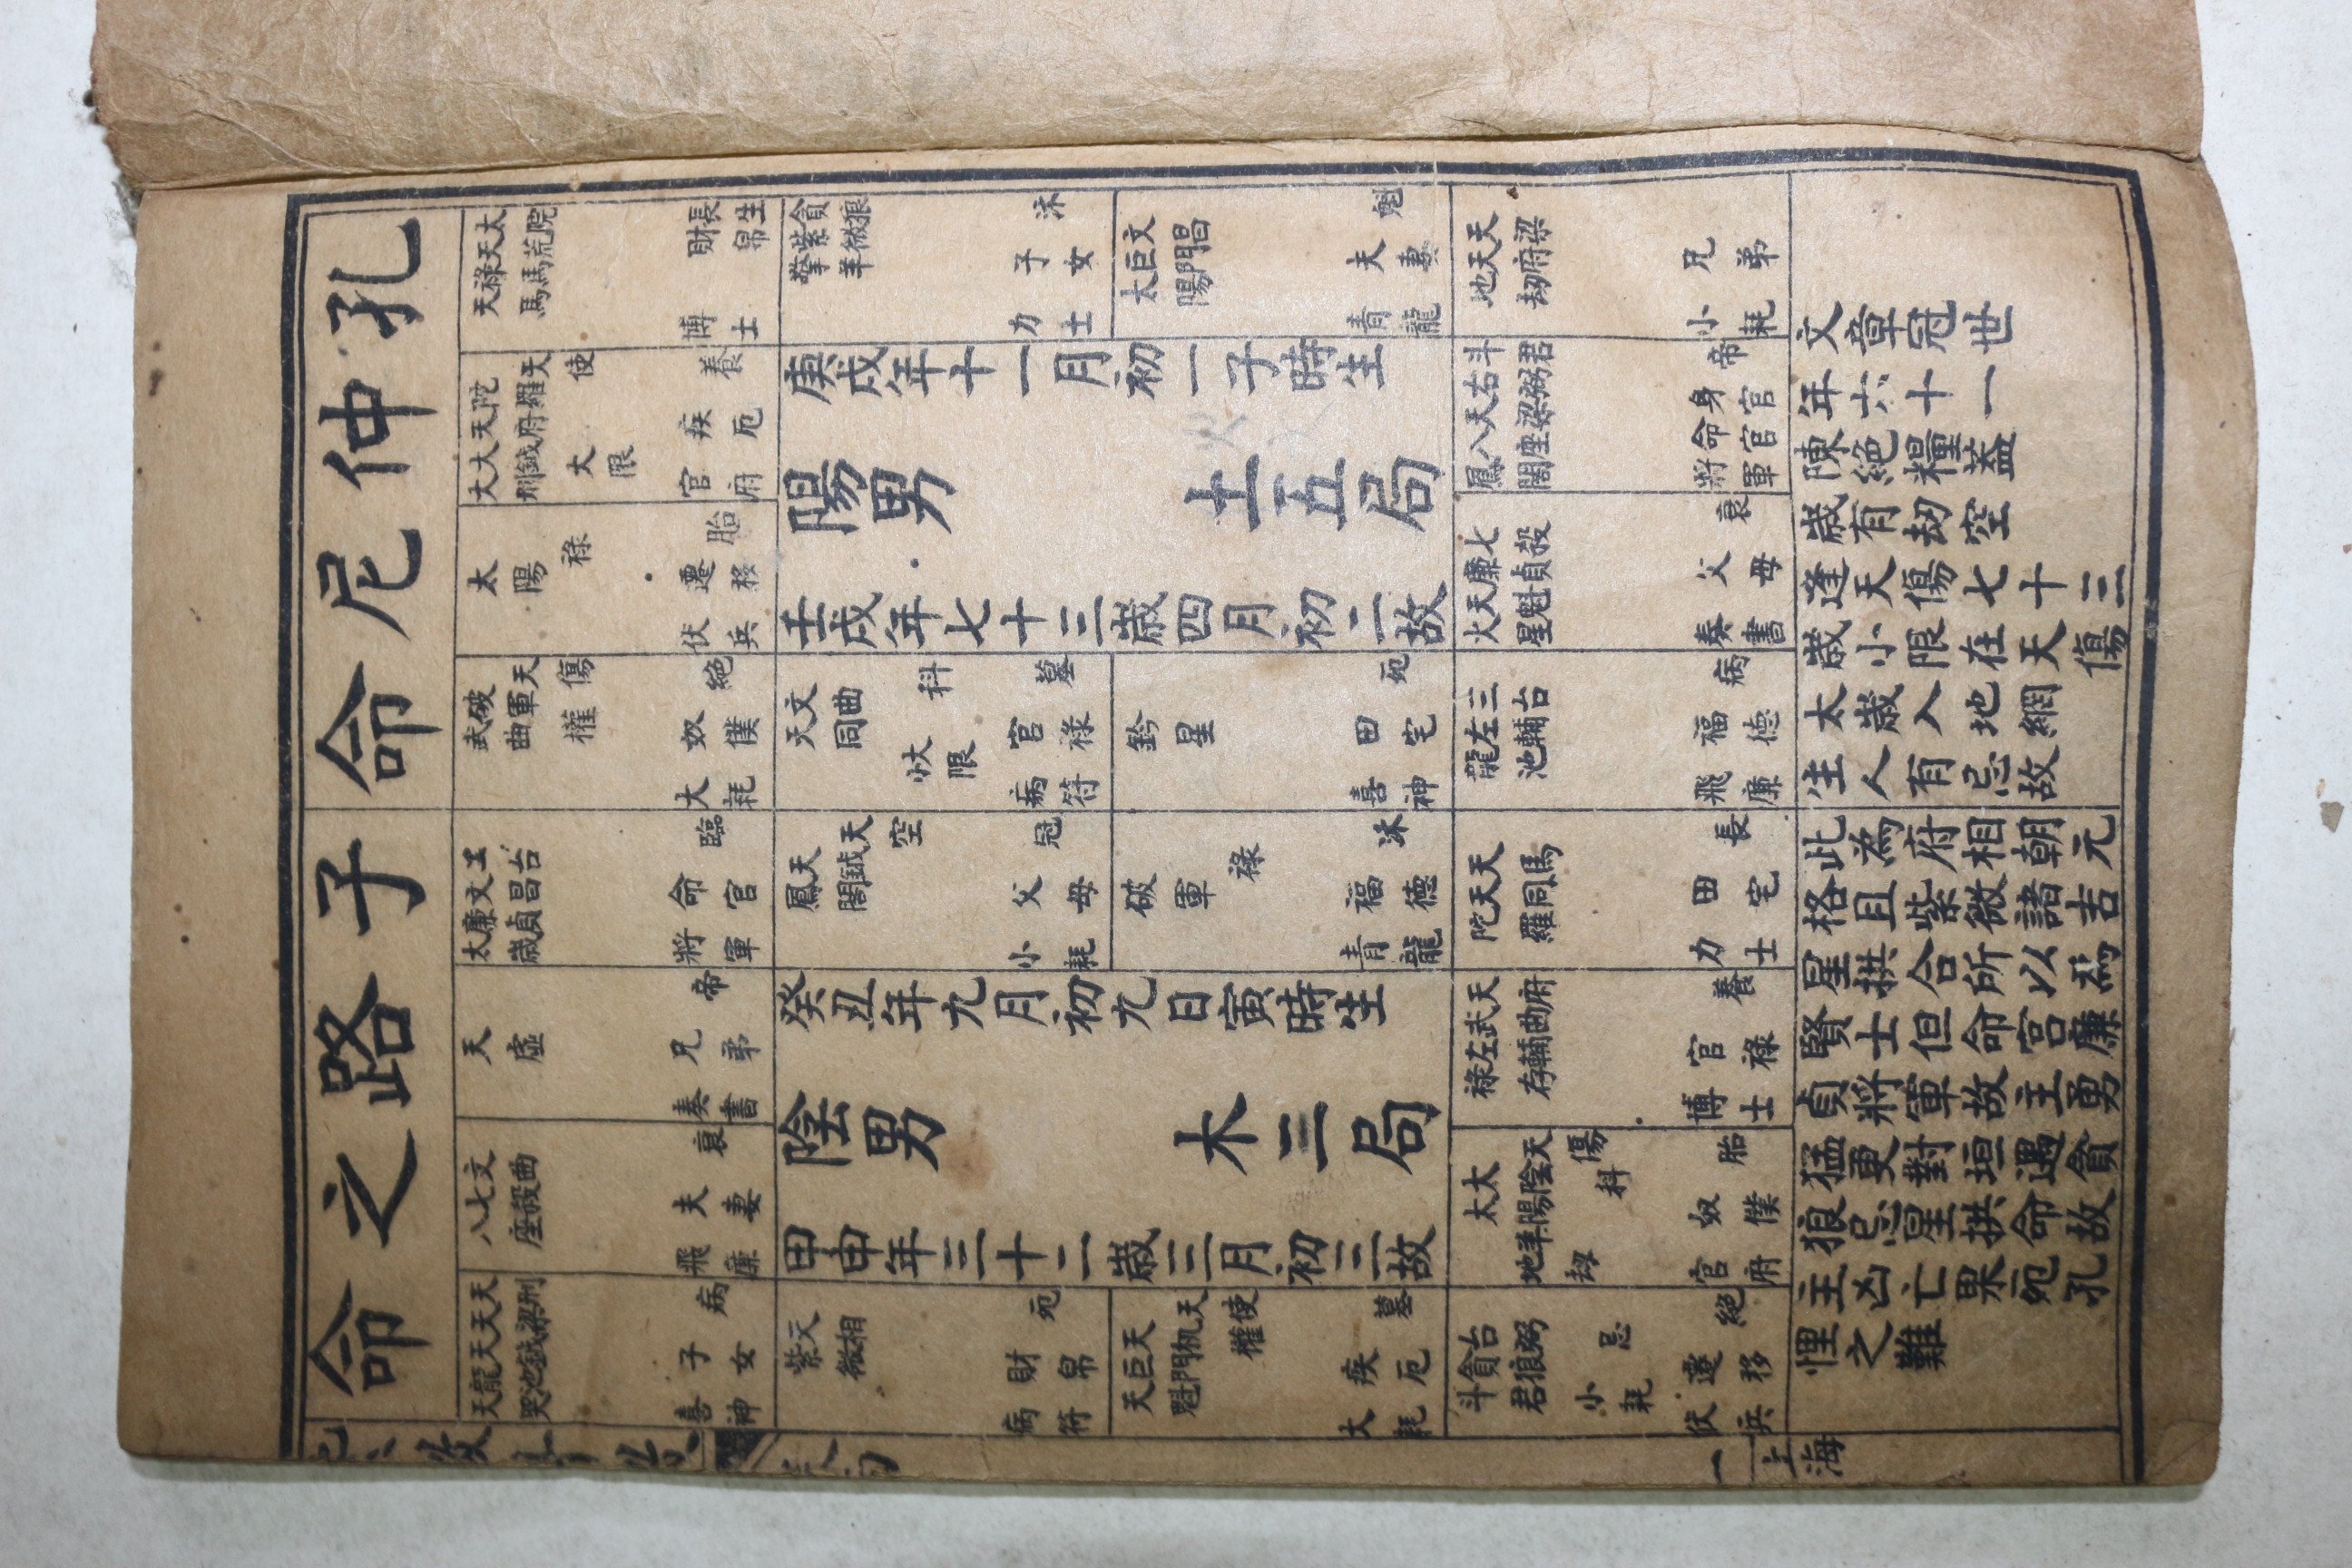 孔仲尼命
太院
天荒
祿馬
天馬
長生
財帛
博士
陀羅
天府
天鉞
大刑
天使
大限
養
疾厄
官府
太陽
祿
胎
遷移
伏兵
破軍
武曲
天傷
權
絕
奴僕
大耗
貪狼
紫微
擎羊
沐
子女
力士
庚戌年十一月初一子時生
陽男
土五局
壬戌年七十三歲四月初二故
文曲
天同
科
限
墓
官祿
病符
文昌
巨門
太陽
魁
夫妻
青龍
鈴星
死
田宅
喜神
天梁
天府
地劫
兄弟
小耗
斗君
右弼
天梁
八座
鳳閣
帝
身官
命官
將軍
七殺
廉貞
天魁
火星
衰
父母
奏書
三台
左輔
龍池
病
福德
飛廉
文章冠世
年六十一
陳絕糧蓋
歲有劫空
逢天傷七十三
歲小限在天傷
太歲入地網
生人有忌故
子路之命
文昌
廉貞
太歲
臨
命官
將軍
天虛
帝
兄弟
奏書
文曲
七殺
八座
衰
夫妻
飛廉
天刑
天梁
天鉞
龍池
天哭
病
子女
喜神
天鉞
鳳閣
天空
冠
父母
小耗
癸丑年九月初九日寅時生
陰男
木三局
甲申年三十二歲三月初三故
天相
紫微
死
財帛
病符
破軍
祿
沐
福德
青龍
天机
巨門
天魁
天使
權
墓
疾厄
大耗
天馬
天同
陀羅
長
田宅
力士
天府
武曲
左輔
祿存
養
官祿
博士
太陰
太陽
羊
地劫
天傷
科
胎
奴僕
官府
台弼
貪狼
斗君
忌
小耗
絕
遷移
伏兵
此為府相朝元
格且紫微諸吉
星拱合所以為
賢士但命宮廉
貞將軍故主勇
猛更對垣遇貪
狼忌星拱命故
主凶亡果死孔
悝之難
一
上海